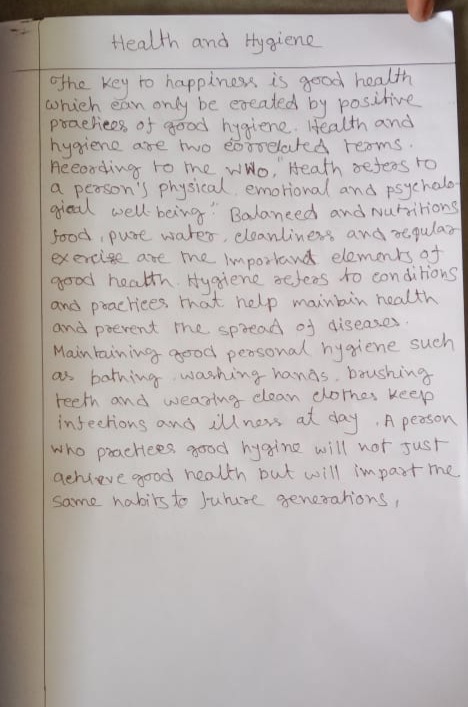 Health and Hygiene
The key to happiness is good health
which can only be created by positive
practices of good hygiene. Health and
hygiene are two correlated terms.
According to the WHO, "Heath refers to
a person's physical, emotional and psycholo-
gical well-being". Balanced and Nutritions
food, pure water, cleanliness and regular
exercise are the Important elements of
good health. Hygiene refers to conditions
and practices that help maintain health
and prevent the spread of diseases.
Maintaining good personal hygiene such
as bathing, washing hands, brushing
teeth and wearing clean clothes keep
infections and illness at day. A person
who practices good hygine will not just
achieve good health but will impart the
same habits to future generations,